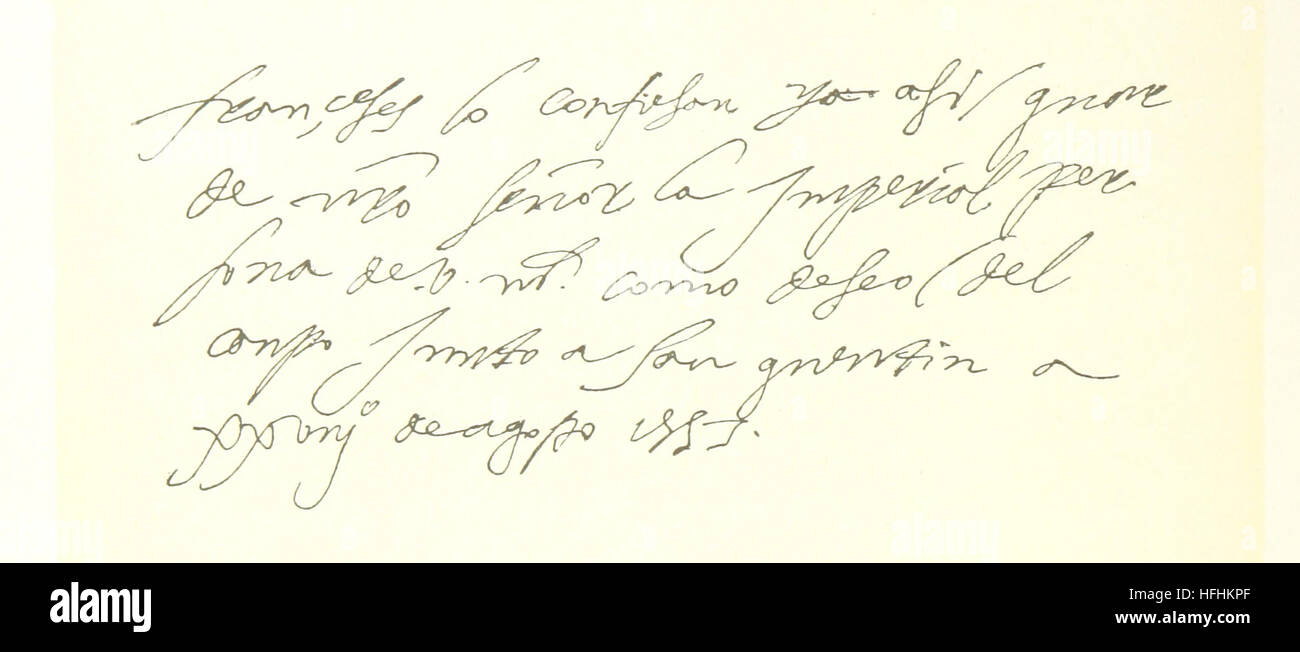 françeses lo confiesan ya asi guarde
de nr̃o señor la Imperial per
sona de v. mt. como deseo del
canpo Junto a san quentin a
xxviijº de agosto 1557.
alamy
HFHKPF
www.alamy.com